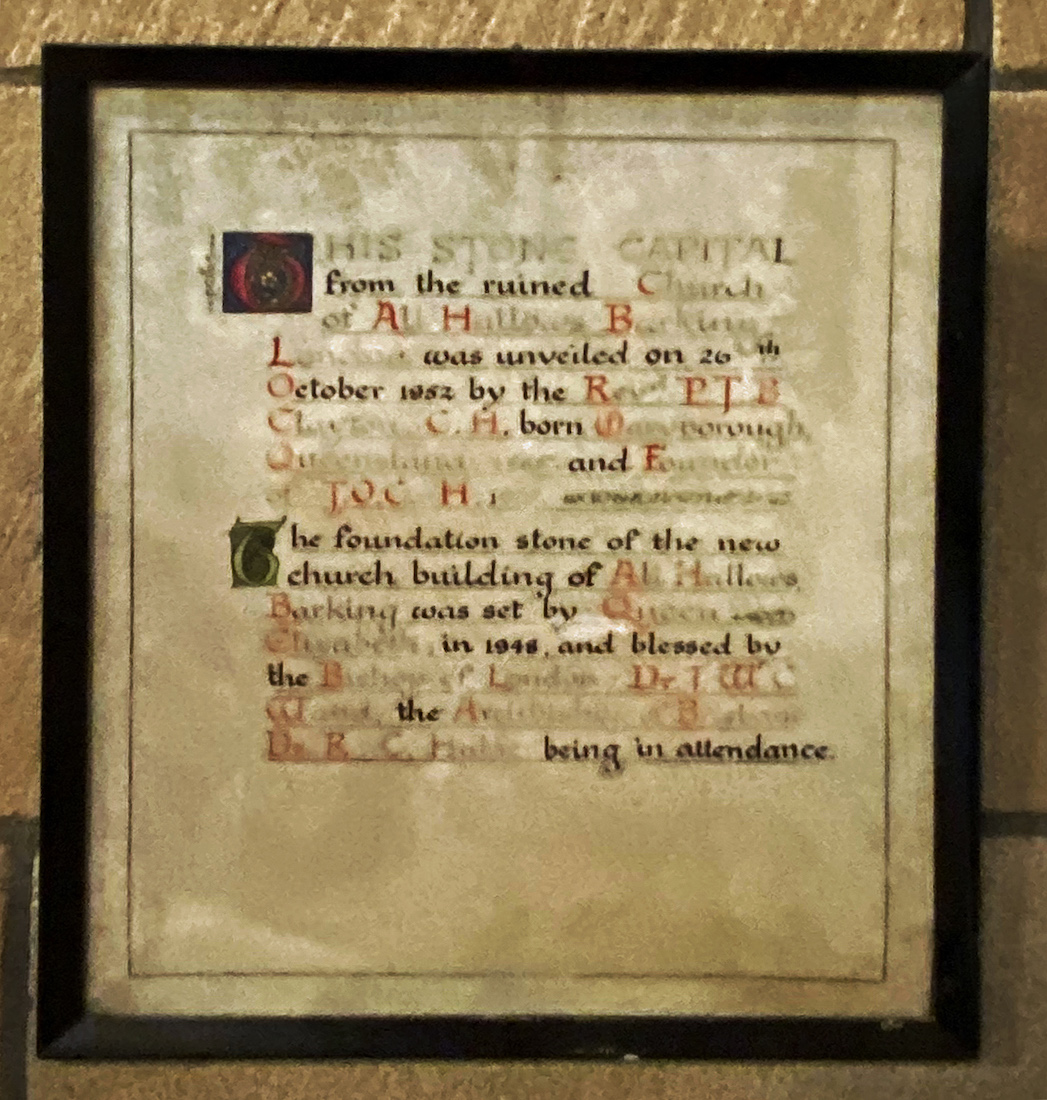 THIS STONE CAPITAL
from the ruined Church
of All Hallows Barking
London was unveiled on 26th
October 1952 by the Rev P T B
Clayton C. H. born Maryborough,
Queensland and Founder
of T.O.C. H.
The foundation stone of the new
church building of All Hallows
Barking was set by Queen
Elizabeth, in 1948, and blessed by
the Bishop of London Dr J W C
Wand, the Archbishop of
Dr. R. C. being in attendance.